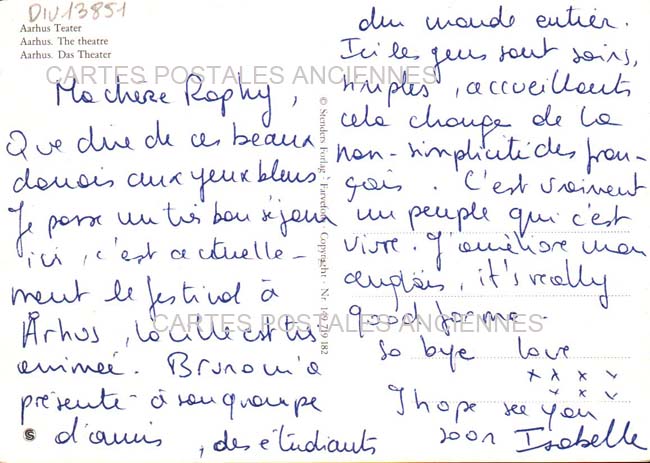 DIV13851
Aarhus Teater
Aarhus. The theatre
Aarhus. Das Theater
CARTES POSTALES ANCIENNES
Ma chere Raphy,
Que dire de ces beaux
danois aux yeux bleus
Je passe un très bon séjour
ici, c'est actuelle-
ment le festival à
Århus, la ville est très
animée. Bruno m'a
présenté à son groupe
d'amis, des étudiants
© Stenders Forlag Farvefoto Copyright Nr. 182
du monde entier.
Ici les gens sont sains,
simples, accueillants
cela change de la
non-simplicité des fran-
çais. C'est vraiment
un peuple qui c'est
vivre. J'améliore mon
anglais, it's really
good for me.
CARTES POSTALES ANCIENNES
so bye love
x x x x
x x x x
I hope see you
soon Isabelle
S